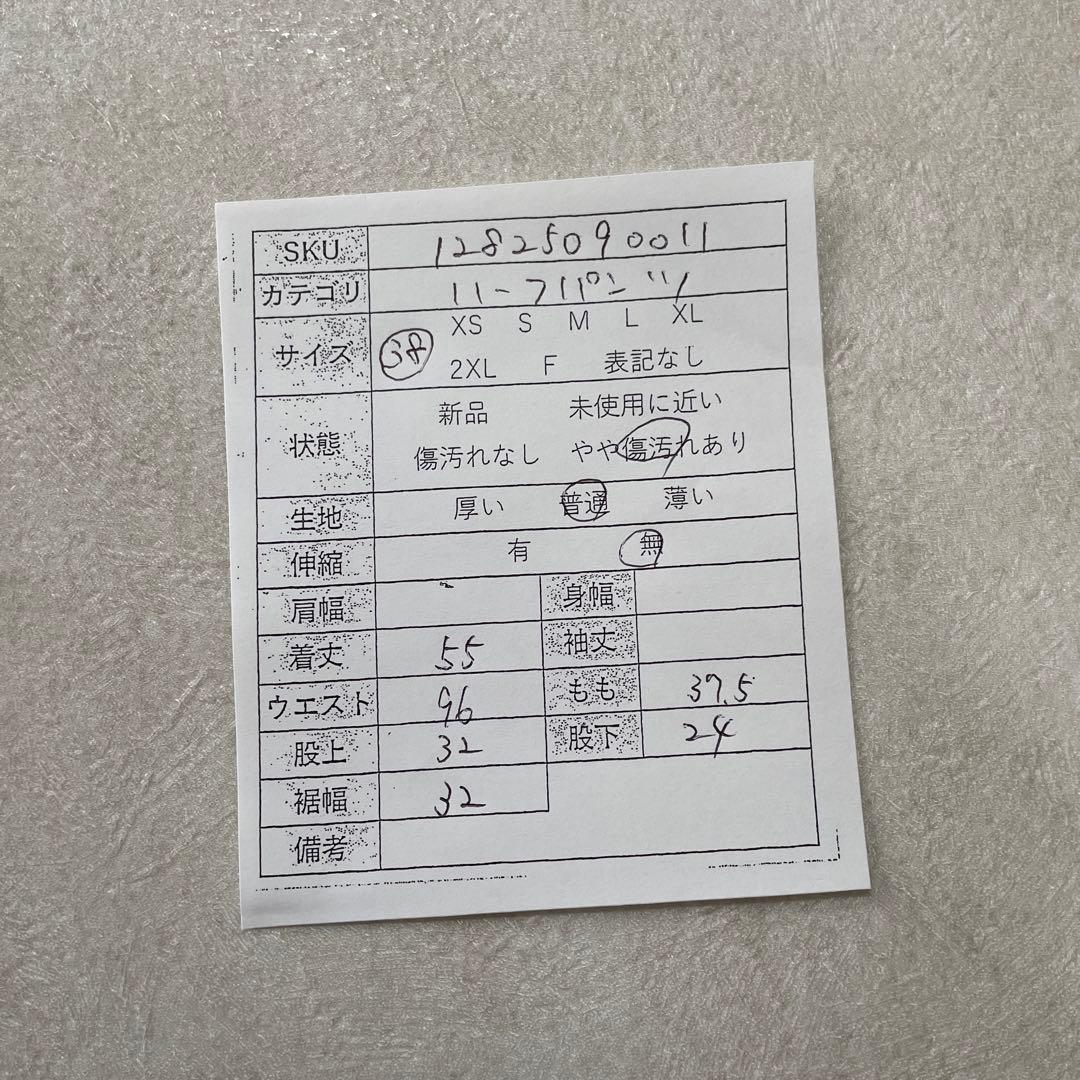 SKU 12825090011
カテゴリ ハーフパンツ
サイズ 38 XS S M L XL
2XL F 表記なし
状態 新品 未使用に近い
傷汚れなし やや傷汚れあり
生地 厚い 普通 薄い
伸縮 有 無
肩幅 身幅
着丈 55 袖丈
ウエスト 96 もも 37.5
股上 32 股下 24
裾幅 32
備考